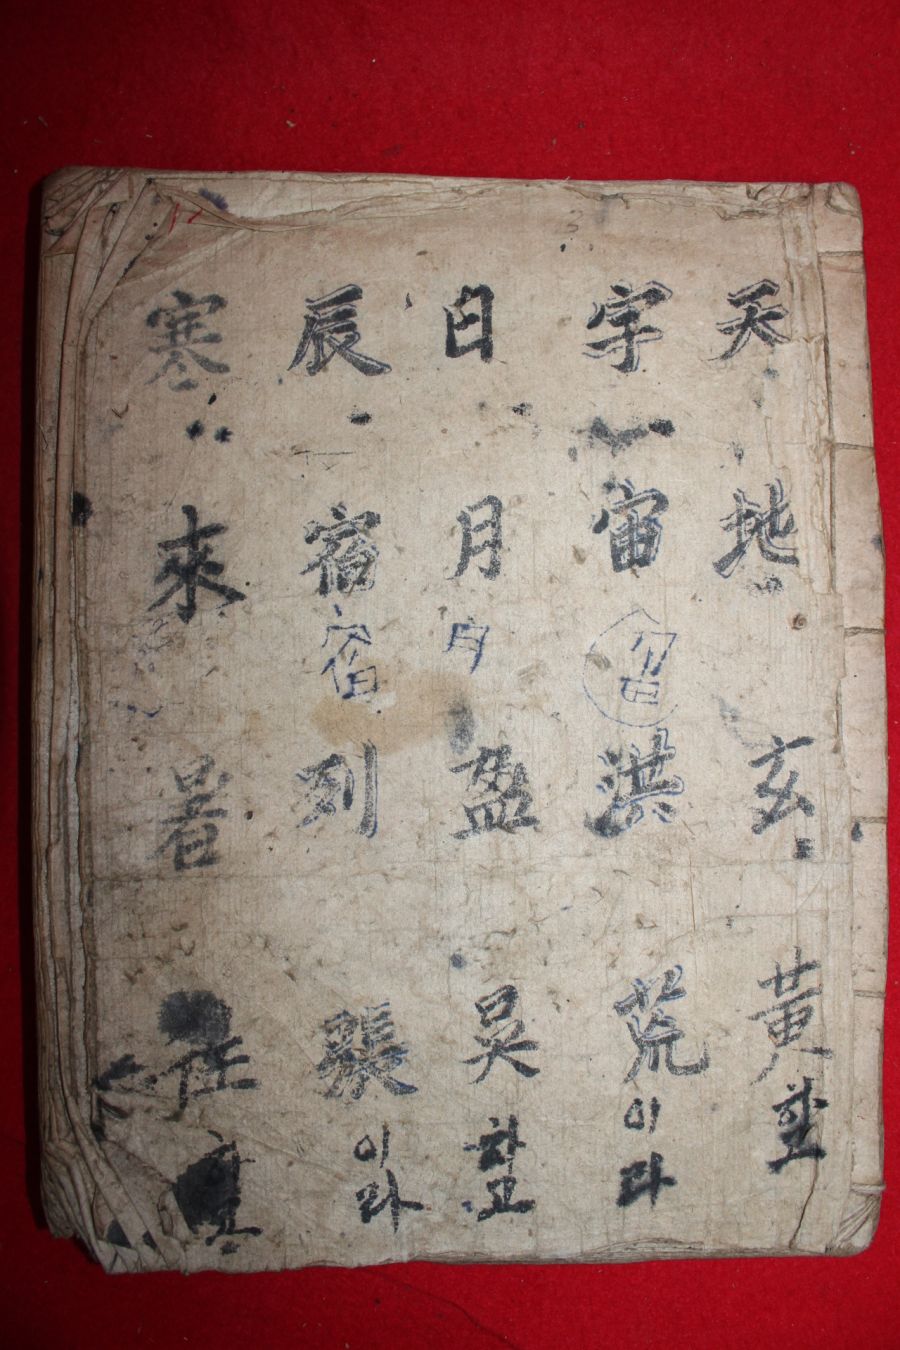 天地玄黃하고
宇宙洪荒이라
日月盈昃하고
辰宿宿列張이라
寒來暑往하고